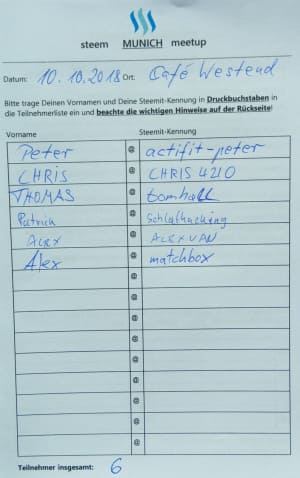 steem MUNICH meetup
Datum: 10.10.2018 Ort: Café Westend
Bitte trage Deinen Vornamen und Deine Steemit-Kennung in Druckbuchstaben in
die Teilnehmerliste ein und beachte die wichtigen Hinweise auf der Rückseite!
Vorname Steemit-Kennung
Peter @ actifit-peter
CHRIS @ CHRIS4210
THOMAS @ tomhall
Patrick @ Schlafhacking
ALEX @ ALEXVAN
Alex @ matchbox
@
@
@
@
@
@
@
@
@
Teilnehmer insgesamt: 6